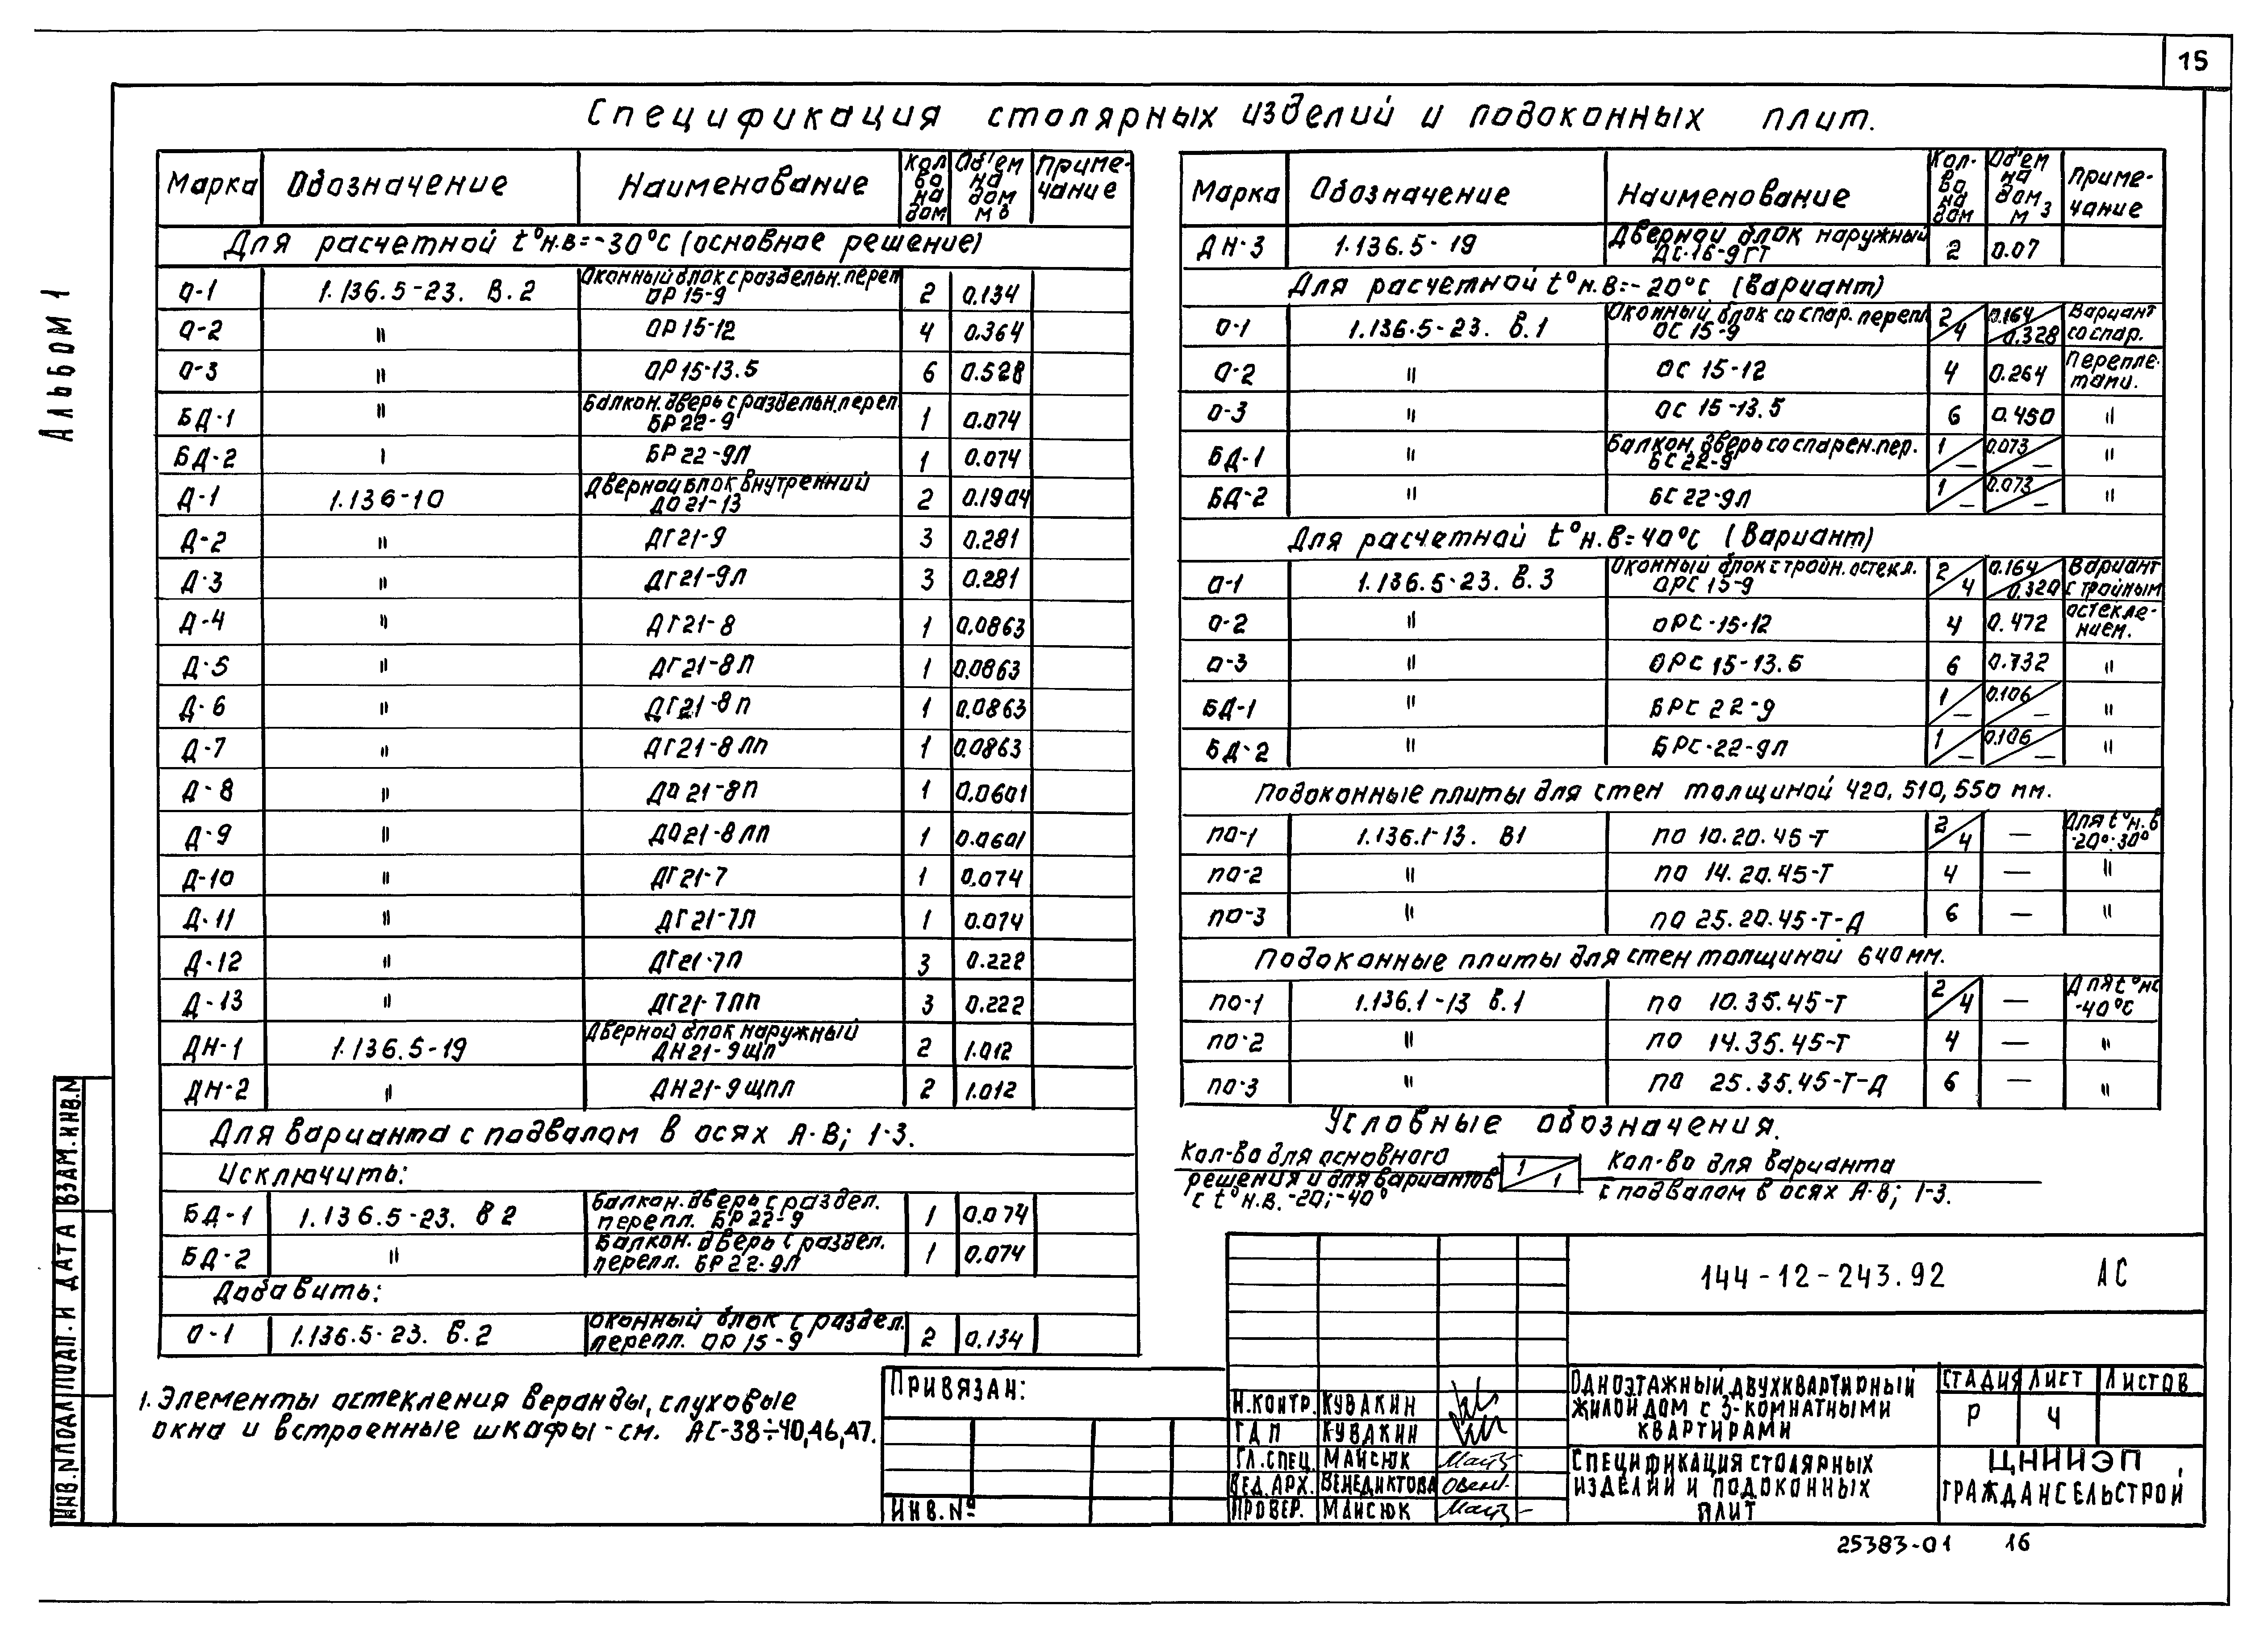 15
Альбом 1
Спецификация столярных изделий и подоконных плит.
Марка Обозначение Наименование Кол-во на дом Об'ем на дом м3 Примечание
Для расчетной t°н.в=-30°с (основное решение)
О-1 1.136.5-23. В.2 Оконный блок с раздельн. переп. ОР 15-9 2 0.134
О-2 " ОР 15-12 4 0.364
О-3 " ОР 15-13.5 6 0.528
БД-1 " Балкон. дверь с раздельн. переп. БР 22-9 1 0.074
БД-2 " БР 22-9Л 1 0.074
Д-1 1.136-10 Дверной блок внутренний ДО 21-13 2 0.1904
Д-2 " ДГ 21-9 3 0.281
Д-3 " ДГ 21-9Л 3 0.281
Д-4 " ДГ 21-8 1 0.0863
Д-5 " ДГ 21-8 Л 1 0.0863
Д-6 " ДГ 21-8 П 1 0.0863
Д-7 " ДГ 21-8 ЛП 1 0.0863
Д-8 " ДО 21-8П 1 0.0601
Д-9 " ДО 21-8 ЛП 1 0.0601
Д-10 " ДГ 21-7 1 0.074
Д-11 " ДГ 21-7Л 1 0.074
Д-12 " ДГ 21-7П 3 0.222
Д-13 " ДГ 21-7ЛП 3 0.222
ДН-1 1.136.5-19 Дверной блок наружный ДН 21-9 ЩП 2 1.012
ДН-2 " ДН 21-9 ЩПЛ 2 1.012
Для варианта с подвалом в осях А-В; 1-3.
Исключить:
БД-1 1.136.5-23. В 2 Балкон. дверь с раздел. перепл. БР 22-9 1 0.074
БД-2 " Балкон. дверь с раздел. перепл. БР 22-9Л 1 0.074
Добавить:
О-1 1.136.5-23. В.2 Оконный блок с раздел. перепл. ОР 15-9 2 0.134
1. Элементы остекления веранды, слуховые
окна и встроенные шкафы - см. АС-38÷40,46,47.
Марка Обозначение Наименование Кол-во на дом Об'ем на дом м3 Примечание
ДН-3 1.136.5-19 Дверной блок наружный ДС-16-9 ГТ 2 0.07
Для расчетной t°н.в=-20°с (Вариант)
О-1 1.136.5-23. В.1 Оконный блок со спар. перепл. ОС 15-9 2/4 0.164/0.328 Вариант со спар.
О-2 " ОС 15-12 4 0.264 Переплетами.
О-3 " ОС 15-13.5 6 0.450 "
БД-1 " Балкон. дверь со спарен. пер. БС 22-9 1/— 0.073/— "
БД-2 " БС 22-9Л 1/— 0.073/— "
Для расчетной t°н.в=40°с (Вариант)
О-1 1.136.5-23. В.3 Оконный блок с тройн. остекл. ОРС 15-9 2/4 0.164/0.320 Вариант с тройным
О-2 " ОРС-15-12 4 0.472 остеклением.
О-3 " ОРС 15-13.5 6 0.732 "
БД-1 " БРС 22-9 1/— 0.106/— "
БД-2 " БРС-22-9Л 1/— 0.106/— "
Подоконные плиты для стен толщиной 420, 510, 550 мм.
ПО-1 1.136.1-13. В1 ПО 10.20.45-Т 2/4 — Для t°н.в -20°-30°
ПО-2 " ПО 14.20.45-Т 4 — "
ПО-3 " ПО 25.20.45-Т-Д 6 — "
Подоконные плиты для стен толщиной 640 мм.
ПО-1 1.136.1-13 В.1 ПО 10.35.45-Т 2/4 — Для t°н.с -40°с
ПО-2 " ПО 14.35.45-Т 4 — "
ПО-3 " ПО 25.35.45-Т-Д 6 — "
Условные обозначения.
Кол-во для основного
решения и для вариантов
с t°н.в. -20; -40°
1/1
Кол-во для варианта
с подвалом в осях А-В; 1-3.
144-12-243.92 АС
Привязан:
Инв. №
Н.контр. Кувакин
ГАП Кувакин
Гл.спец. Майсюк
Вед.арх. Венедиктова
Провер. Майсюк
Одноэтажный двухквартирный
жилой дом с 3-комнатными
квартирами
Стадия Лист Листов
Р 4
Спецификация столярных
изделий и подоконных
плит
ЦНИИЭП
Граждансельстрой
25383-01 16
Инв.№подл Подп. и дата Взам.инв.№